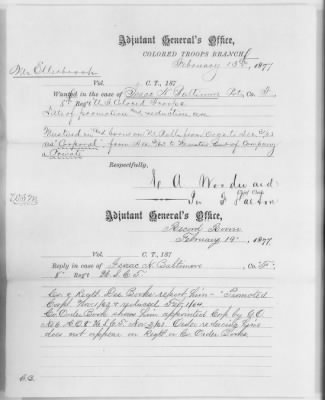 Adjutant General's Office,
COLORED TROOPS BRANCH,
February 13th, 1877
Mr Ellerbrook
Vol. C. T., 187
Wanted in the case of Isaac N. Baltimore Pvt, Co. F,
8" Reg't U S Colored Troops
Date of promotion and reduction
Mustered in and borne on M. Rolls from
as "Corporal", from to Muster out of Company
a Private
Respectfully,
A. Woodward
Adjutant General's Office,
Record Room
February 14", 1877
Vol. C. T., 187
Reply in case of Isaac N. Baltimore, Co. "F",
8" Reg't U.S.C.T.
Co. & Regtl Des Books report him "Promoted
Corpl & reduced
Co. Order Book show him appointed Corp by G.O.
No 6 Order reducing him
does not appear in Regtl or Co. Order Books